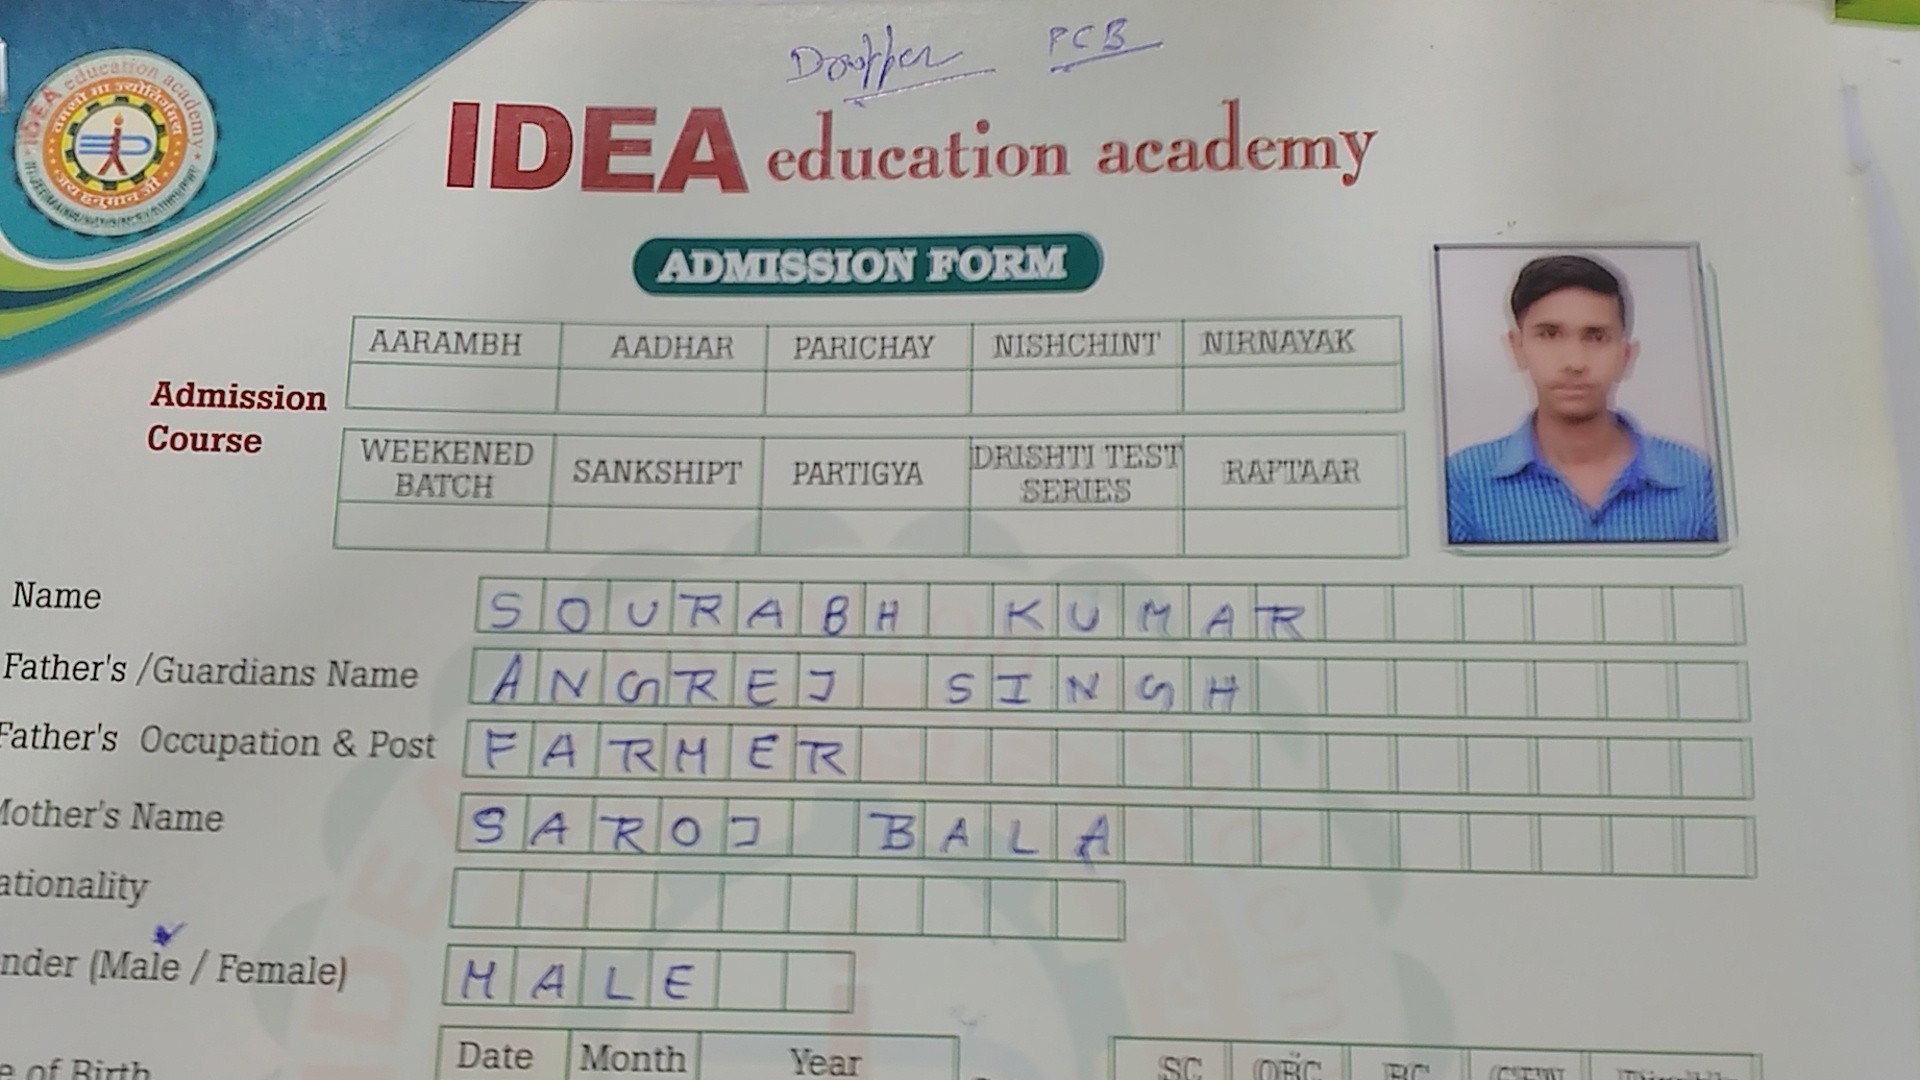 Dropper PCB
IDEA education academy
IDEA education academy
तमसो मा ज्योतिर्गमय
जय हनुमान जी
ADMISSION FORM
AARAMBH AADHAR PARICHAY NISHCHINT NIRNAYAK
Admission
Course
WEEKENED BATCH SANKSHIPT PARTIGYA DRISHTI TEST SERIES RAFTAAR
Name SOURABH KUMAR
Father's /Guardians Name ANGREJ SINGH
Father's Occupation & Post FARMER
Mother's Name SAROJ BALA
ationality
nder (Male / Female) MALE
Date Month Year
e of Birth SC OBC BC